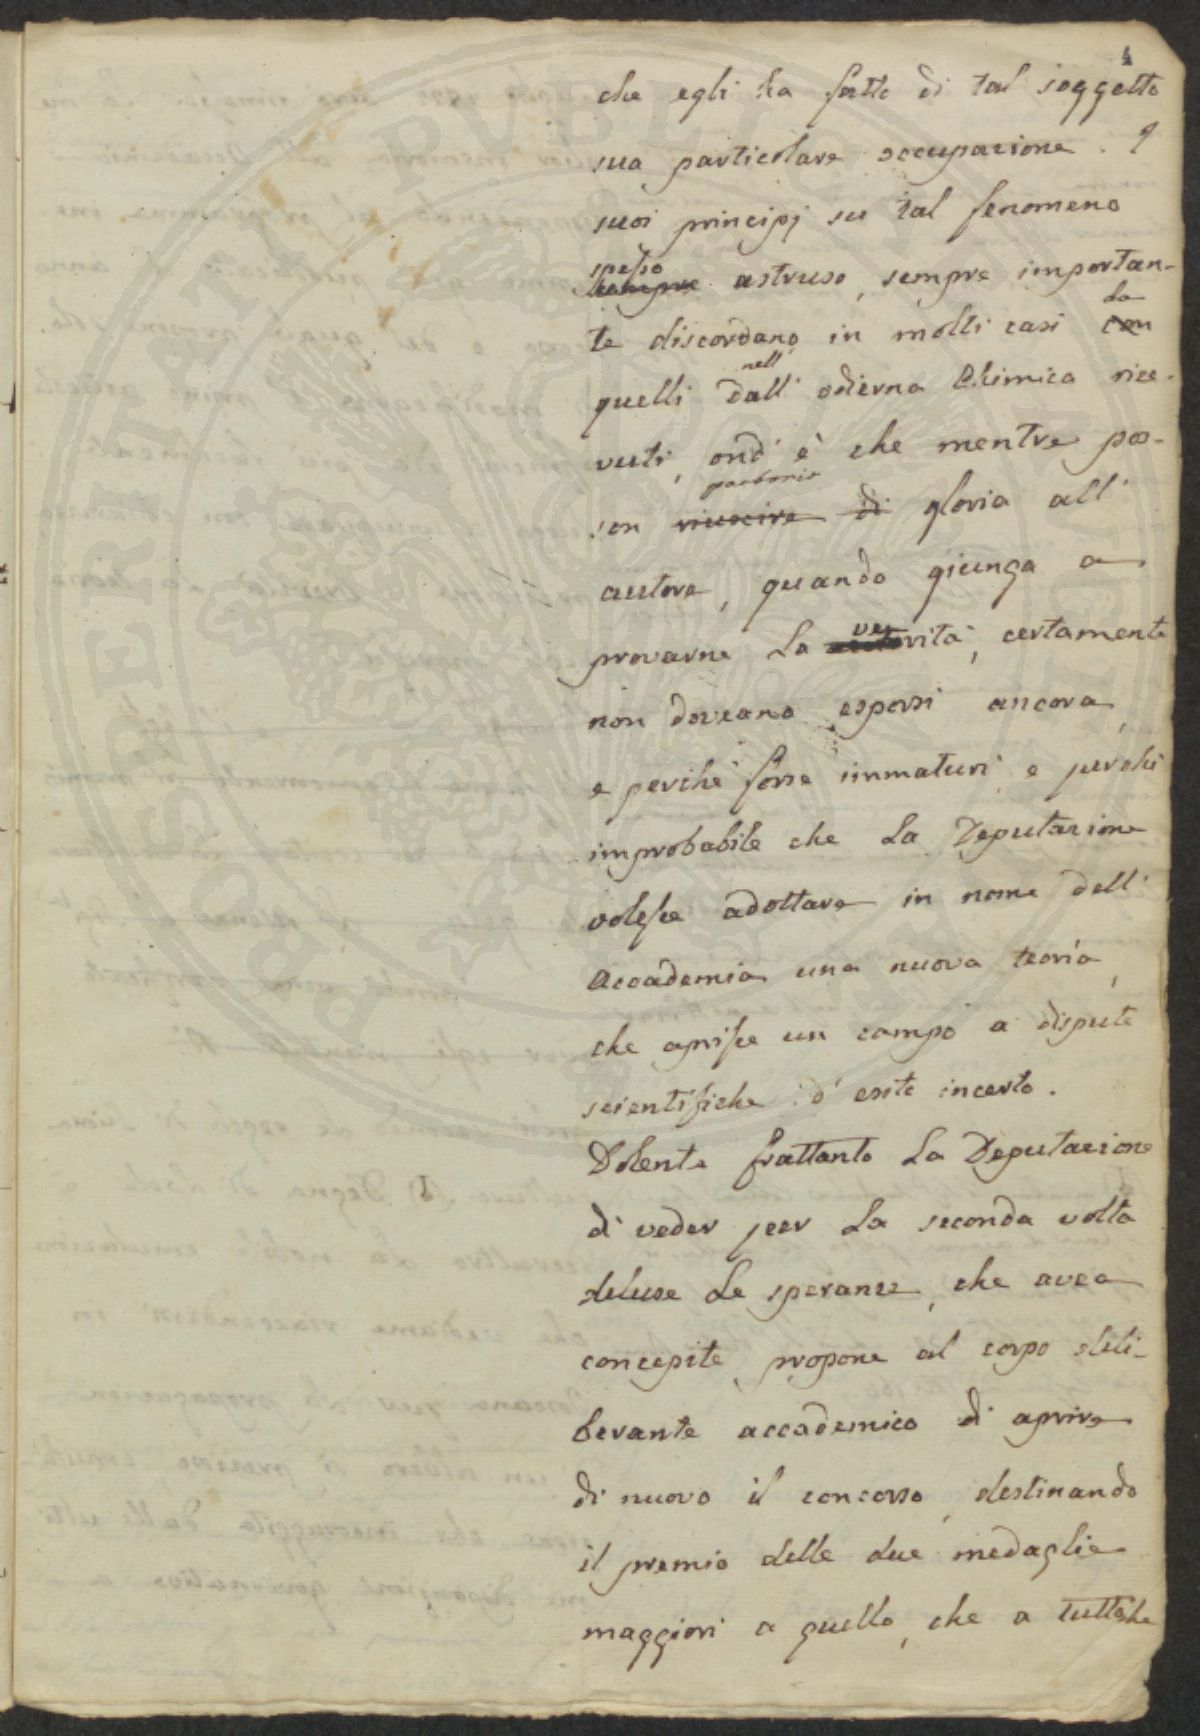 4
che egli ha fatto di tal soggetto
sua particolare occupazione. I
suoi principj su tal fenomeno
spesso
sempre astruso, sempre importan-
da
te discordano in molti casi con
nell'
quelli dall' odierna Chimica rice-
vuti, ond' è che mentre pos-
partorir
son riuscire di gloria all'
autore, quando giunga a
ver
provarne la rità, certamente
non doveano esporsi ancora,
e perchè forse immaturi, e perchè
improbabile che la Deputazione
volesse adottare in nome dell'
Accademia una nuova teoria,
che aprisse un campo a dispute
scientifiche d' esito incerto.
Dolente frattanto la Deputazione
di veder per la seconda volta
deluse le speranze, che avea
concepite, propone al corpo deli-
berante accademico di aprire
di nuovo il concorso, destinando
il premio delle due medaglie
maggiori a quello, che a tutto he
PROSPERITATI PUBLICAE